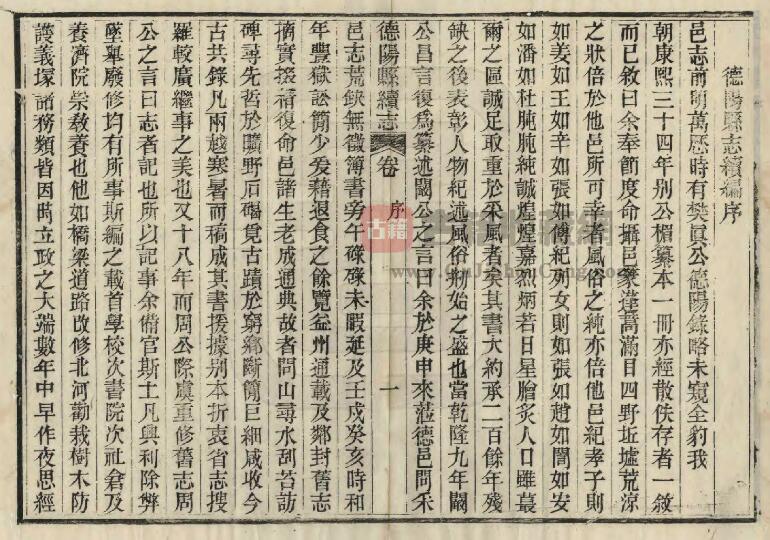 德陽縣志續編序
邑志前明萬厯時有樊眞公德陽錄略未窺全豹我
朝康熙三十四年別公楣纂本一冊亦經散佚存者一敘
而已敘曰余奉節度命攝邑篆蓬蒿滿目四野坵墟荒涼
之狀倍於他邑所可幸者風俗之純亦倍他邑紀孝子則
如姜如王如辛如張如傅紀列女則如張如趙如閻如安
如潘如杜肫肫純誠煌煌嘉烈炳若日星膾炙人口雖蕞
爾之區誠足取重於采風者矣其書大約承二百餘年殘
缺之後表彰人物紀述風俗剏始之盛也當乾隆九年闞
公昌言復爲纂述闞公之言曰余於庚申來蒞德邑問禾
德陽縣續志 卷 序 一
邑志荒缺無徵簿書旁午碌碌未暇延及壬戌癸亥時和
年豐獄訟簡少爰藉退食之餘覽益州通載及鄰封舊志
摘實掇補復命邑諸生老成通典故者問山尋水刮苔訪
碑尋先哲於曠野石碣覓古蹟於窮鄉斷簡巨細咸收今
古共錄凡兩越寒暑而稿成其書援據別本折衷省志搜
羅較廣繼事之美也又十八年而周公際虞重修舊志周
公之言曰志者記也所以記事余備官斯土凡興利除弊
墜舉廢修均有所事斯編之載首學校次書院次社倉及
養濟院崇敎養也他如橋梁道路改修北河勸栽樹木防
護義塚諸務類皆因時立政之大端數年中早作夜思經
古籍
www.GuJiShuCang.com